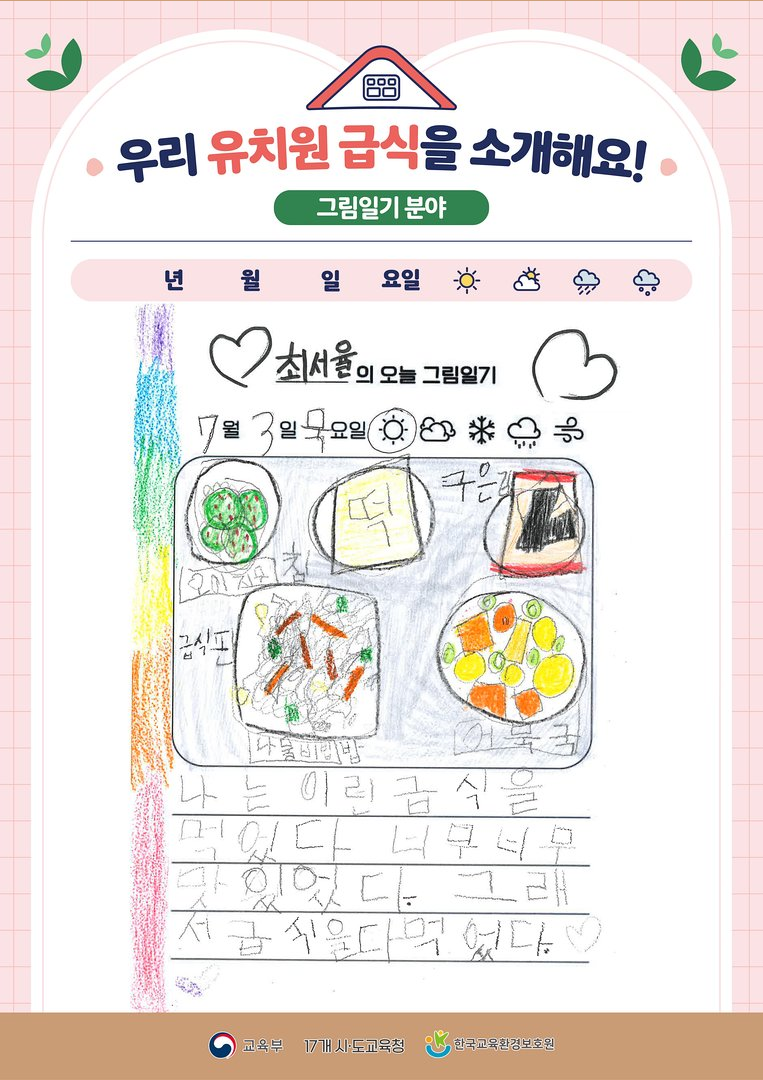 우리 유치원 급식을 소개해요!
그림일기 분야
년 월 일 요일
최서율의 오늘 그림일기
7월 3일 목요일
구은김
떡
오이무침
급식판
나물비빔밥
어묵국
나는 이런 급식을
먹었다 너무너무
맛있었다. 그래
서 급식을다먹었다.
교육부 17개 시·도교육청 한국교육환경보호원